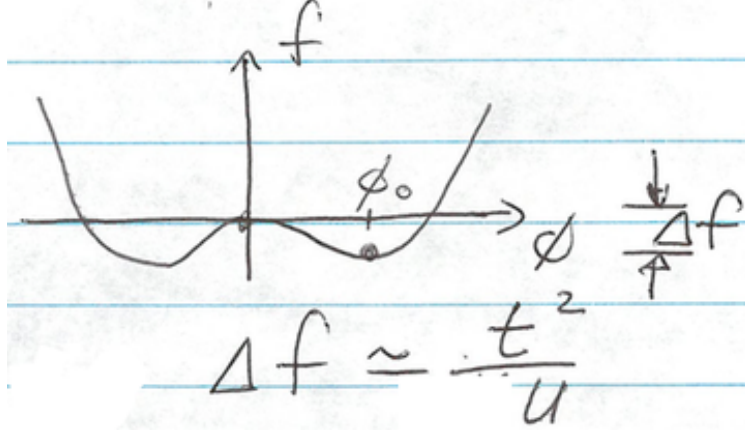 f
ϕ₀
ϕ
Δf
Δf ≃ t²/u